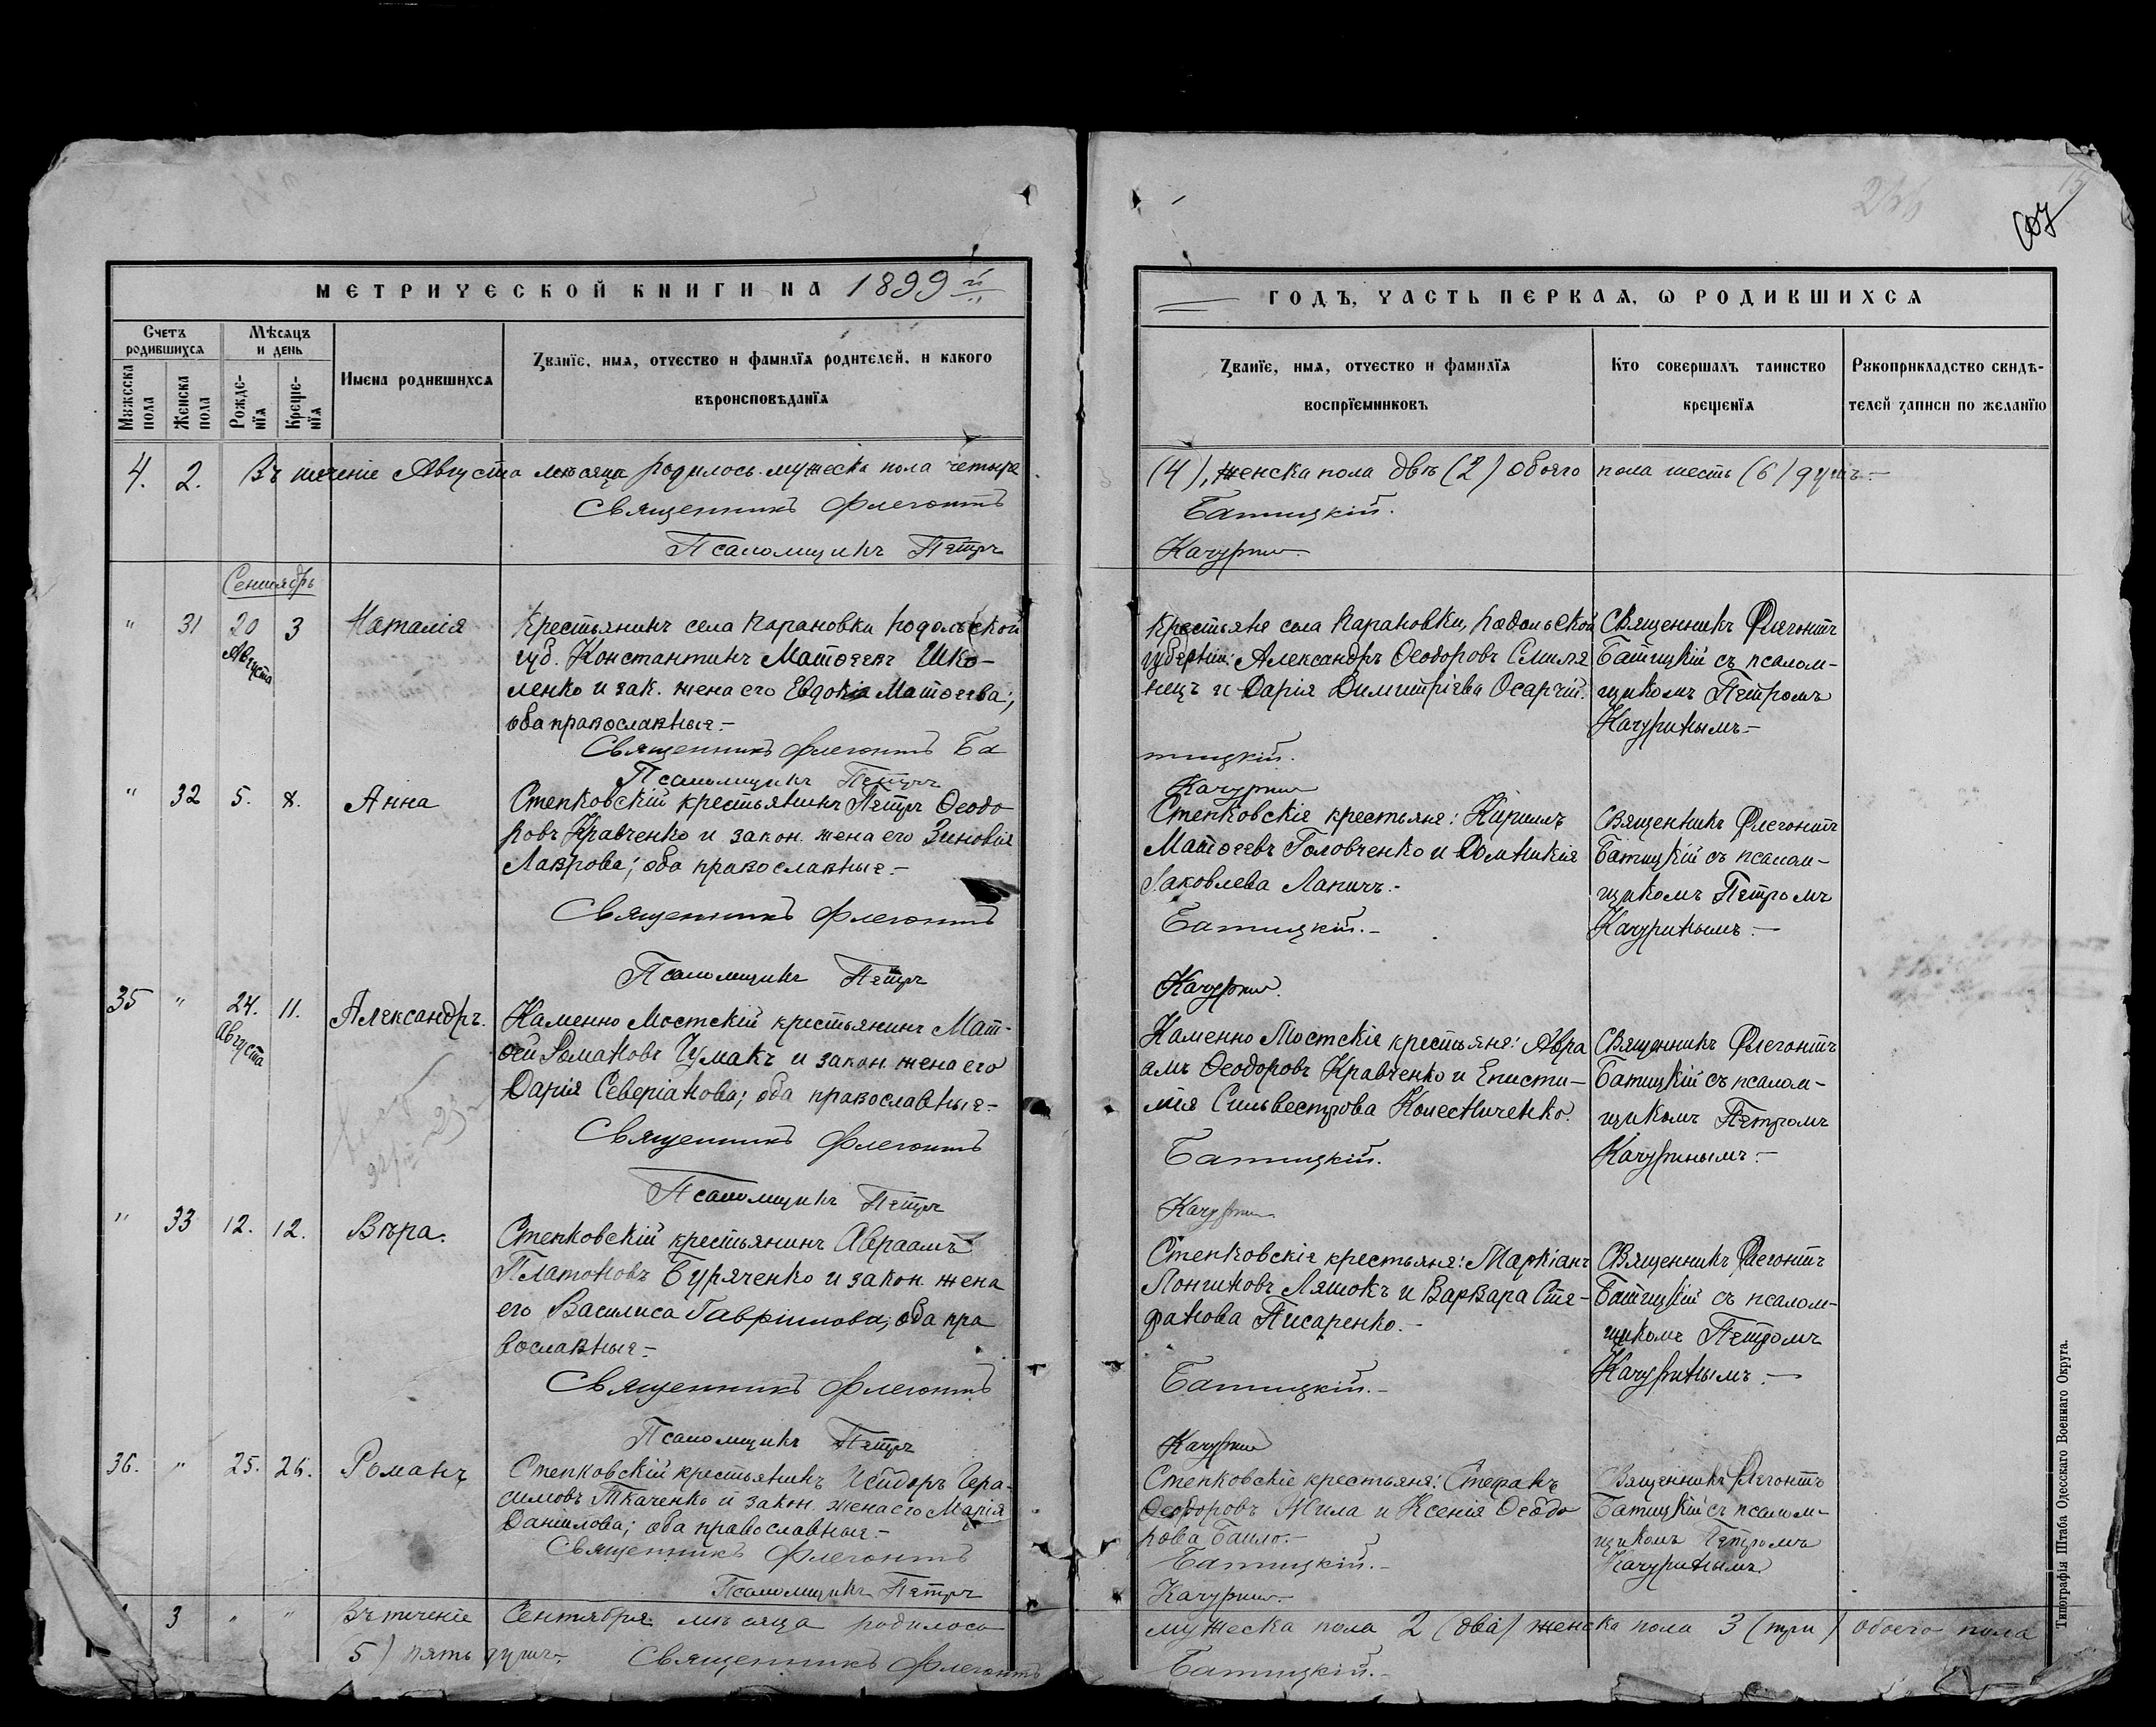 МЕТРИЧЕСКОЙ КНИГИ НА 1899 й
Счетъ родившихся
Мѣсяцъ и день
Мужеска пола
Женска пола
Рожденїя
Крещенїя
Имена родившихся
Званїе, имя, отчество и фамилїя родителей, и какого
вѣроисповѣданїя
4. 2. Въ теченіе Августа мѣсяца родилось мужеска пола четыре
Священникъ Флегонтъ
Псаломщикъ Петръ
Сентябрь
" 31 20 Августа 3 Наталія
Крестьянинъ села Парановки Подольской
губ. Константинъ Матѳеевъ Шко-
ленко и зак. жена его Евдокія Матѳеева;
оба православные.-
Священникъ Флегонтъ Ба
Псаломщикъ Петръ
" 32 5. 8. Анна
Степковскій крестьянинъ Петръ Ѳеодо-
ровъ Кравченко и закон. жена его Зиновія
Лаврова; оба православные.-
Священникъ Флегонтъ
Псаломщикъ Петръ
35 " 24. Августа 11. Александръ.
Каменно Мостскій крестьянинъ Мат-
ѳей Романовъ Чумакъ и закон. жена его
Дарія Северіанова; оба православные-
Священникъ Флегонтъ
Псаломщикъ Петръ
" 33 12. 12. Вѣра.
Степковскій крестьянинъ Авраамъ
Платоновъ Буряченко и закон. жена
его Василиса Гавріилова; оба пра
вославные-
Священникъ Флегонтъ
Псаломщикъ Петръ
36. " 25. 26. Романъ
Степковскій крестьянинъ Исидоръ Гера-
симовъ Ткаченко и закон. жена его Марія
Данилова; оба православные.-
Священникъ Флегонтъ
Псаломщикъ Петръ
3 " " Въ теченіе Сентября мѣсяца родилось
5) пять душъ. Священникъ Флегонтъ
ГОДЪ, ЧАСТЬ ПЕРВАЯ, Ѡ РОДИВШИХСЯ
Званїе, имя, отчество и фамилїя
воспрїемниковъ
Кто совершалъ таинство
крещенїя
Рукоприкладство свидѣ-
телей записи по желанїю
(4), женска пола двѣ (2) обоего пола шесть (6) душъ.-
Батицкій.
Качуринъ
Крестьяне села Парановки, Подольской
губерніи: Александръ Ѳеодоровъ Смиля
нецъ и Дарія Димитріева Осарчій.
тицкій.
Качуринъ
Священникъ Флегонтъ
Батицкій съ псалом-
щикомъ Петромъ
Качуринымъ.-
Степковскіе крестьяне: Кириллъ
Матѳеевъ Головченко и Домникія
Яковлева Лапичъ.-
Батицкій.-
Качуринъ.
Священникъ Флегонтъ
Батицкій съ псалом-
щикомъ Петромъ
Качуринымъ.-
Каменно Мостскіе крестьяне: Авра
амъ Ѳеодоровъ Кравченко и Еписти-
мія Сильвестрова Колесниченко.
Батицкій.
Качуринъ
Священникъ Флегонтъ
Батицкій съ псалом-
щикомъ Петромъ
Качуринымъ.-
Степковскіе крестьяне: Маркіанъ
Лонгиновъ Ляшокъ и Варвара Сте-
фанова Писаренко.-
Батицкій.-
Качуринъ
Священникъ Флегонтъ
Батицкій съ псалом-
щикомъ Петромъ
Качуринымъ.-
Степковскіе крестьяне: Стефанъ
Ѳеодоровъ Жила и Ксенія Ѳеодо
рова Баило.-
Батицкій.-
Качуринъ.
Священникъ Флегонтъ
Батицкій съ псалом-
щикомъ Петромъ
Качуринымъ
мужеска пола 2 (два) женска пола 3 (три) обоего пола
Батицкій.-
Типографія Штаба Одесскаго Военнаго Округа.